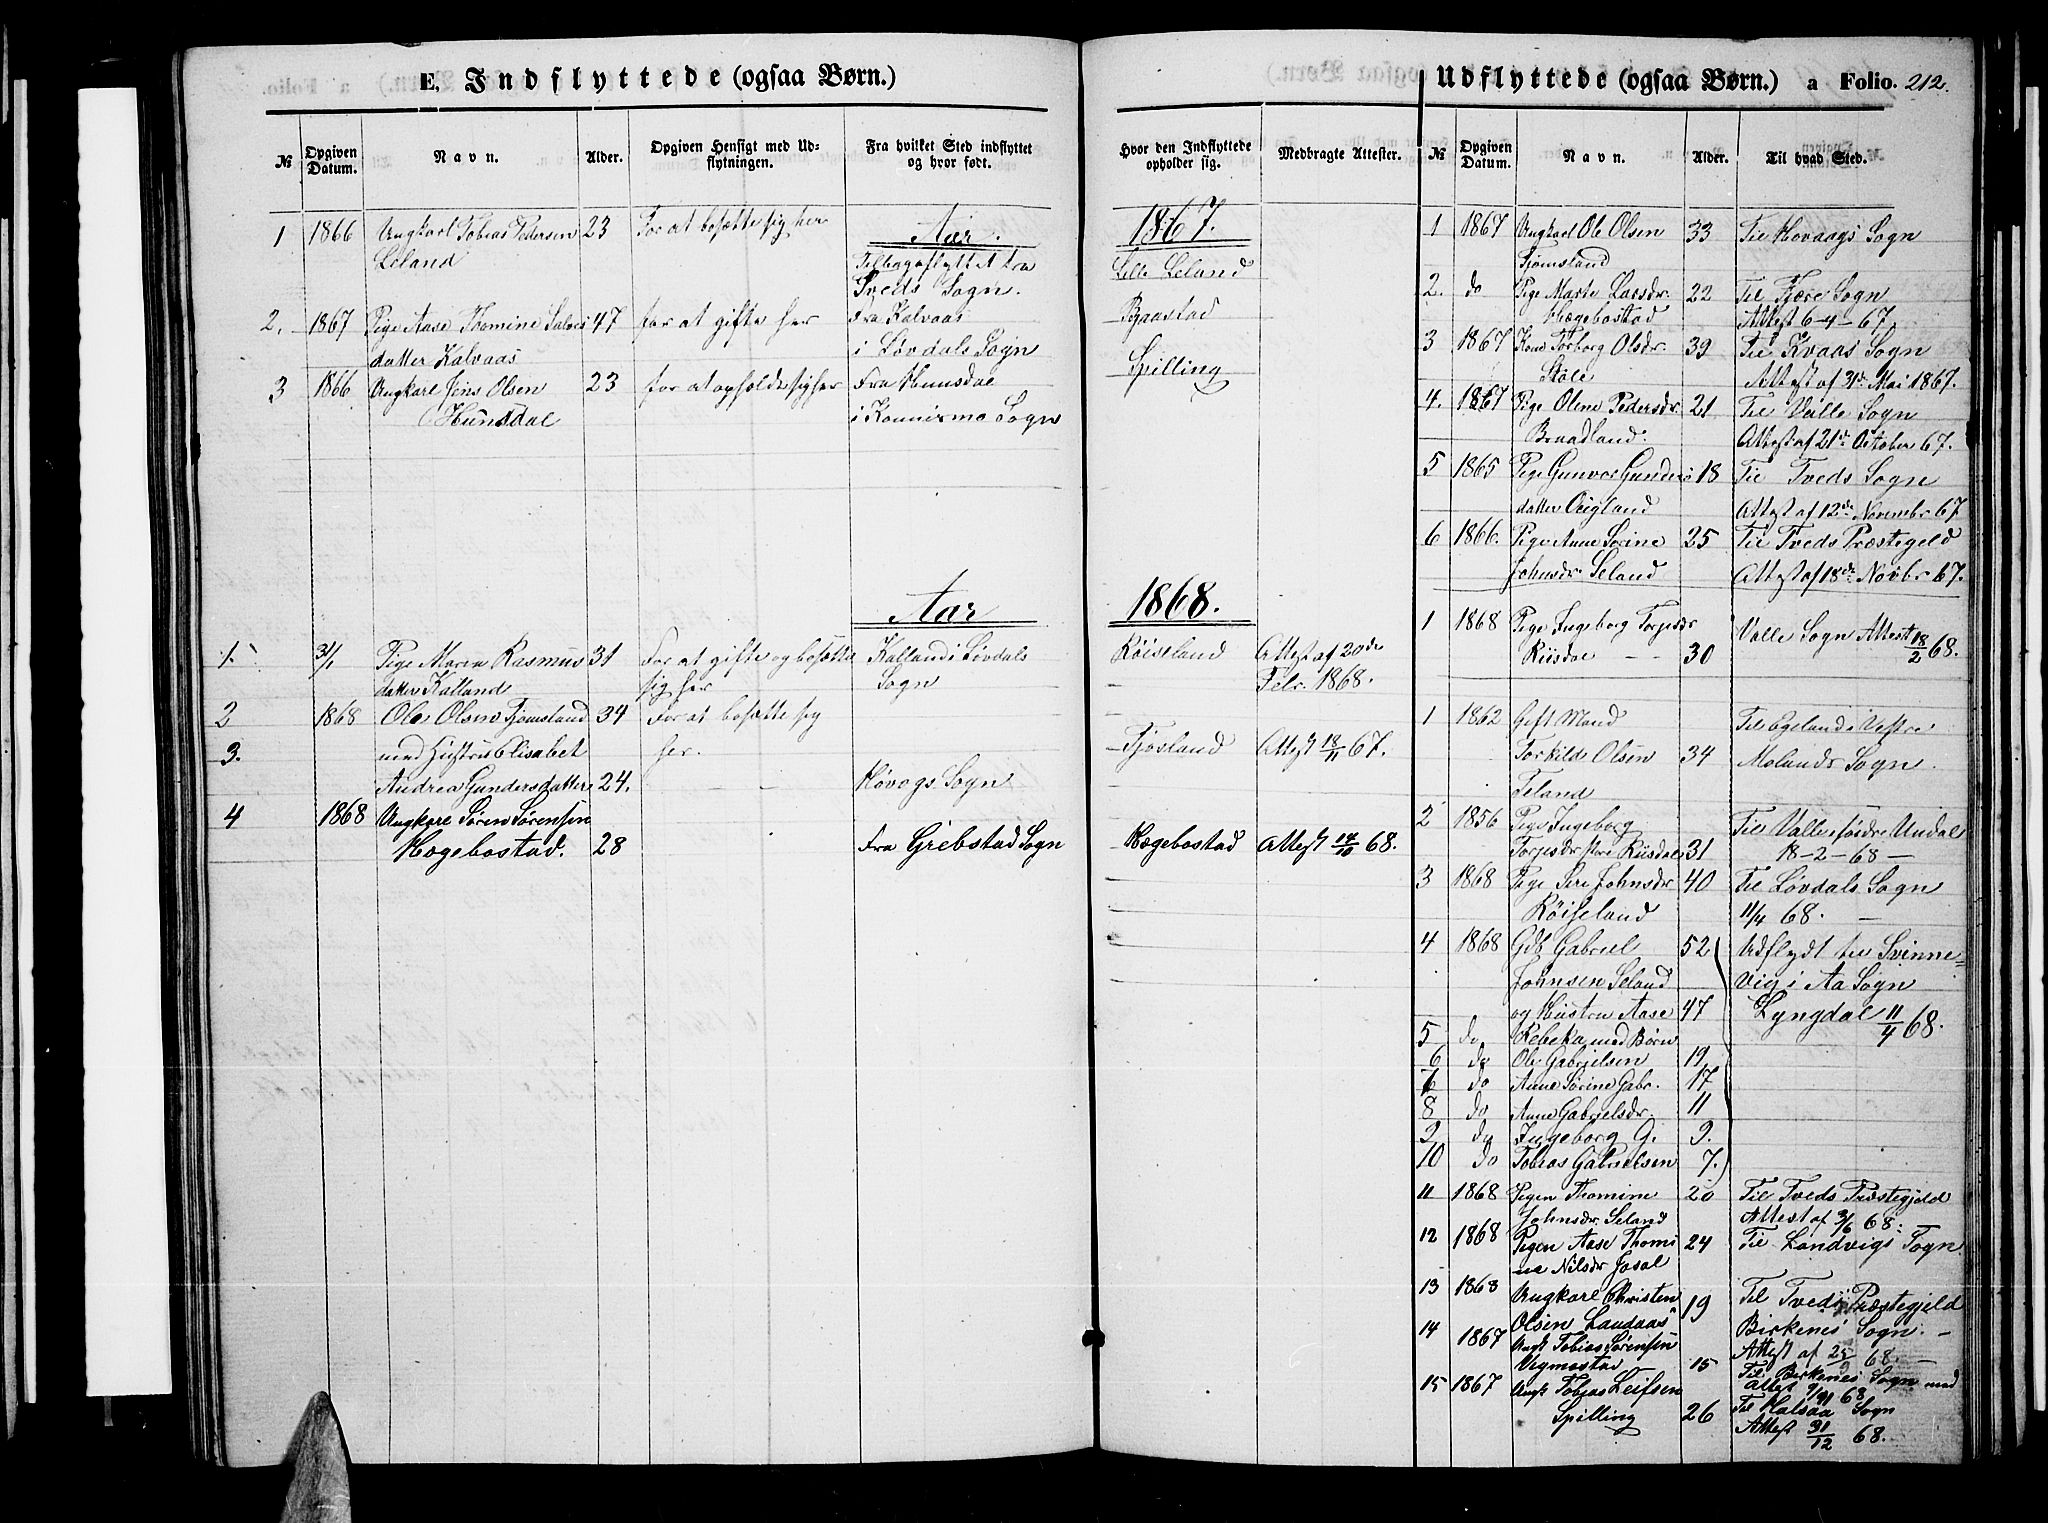 E. Indflyttede (ogsaa Børn.)
№ Opgiven Datum. Navn. Alder. Opgiven Hensigt med Udflytningen. Fra hvilket Sted indflyttet og hvor født.
1 1866 Ungkarl Tobias Pedersen 23 For at besætte sig her Aar.
Leland Tilbageflyttet fra
Tveds Sogn.
2. 1867 Pige Aase Thomine Salves 47 for at gifte her Fra Kalvaas
datter Kalvaas i Løvdals Sogn
3 1866 Ungkarl Jens Olsen 23 for at opholde sig her Fra Hunsdal
Hunsdal i Konnismo Sogn
Aar
1. 31/1 Pige Maren Rasmus 31 For at gifte og besætte Kalland i Løvdals
datter Kalland sig her Sogn
2 1868 Ole Olsen Tjomsland 34 For at besætte sig
3. med Hustru Elisabet her.
Andrea Gundersdatter 24. Høvogs Sogn
4 1868 Ungkarl Søren Sørensen
Hægebostad. 28 Fra Grebstad Sogn
Udflyttede (ogsaa Børn.) a Folio. 212.
Hvor den Indflyttede opholder sig. Medbragte Attester.
1867.
Lille Leland
Baastad
Spilling
1868.
Røiseland Attest af 20de
Febr. 1868.
Tjøsland Attest 18/11 67.
Hægebostad Attest 17/10 68.
№ Opgiven Datum. Navn. Alder. Til hvad Sted.
1 1867 Ungkarl Ole Olsen 33 Til Hovaags Sogn
Tjømsland
2. do Pige Marte Larsdr. 22 Til Fjære Sogn
Hægebostad Attest 6-4-67.
3 1867 Kone Torborg Olsdr. 39 Til Kvaas Sogn
Støle Attest af 31te Mai 1867.
4. 1867 Pige Olene Pedersdr. 21 Til Valle Sogn
Braadland. Attest af 21de October 67.
5 1865 Pige Gunvor Gunders 18 Til Tveds Sogn
datter Øigland Attest af 12de Novembr 67
6 1866. Pige Anne Serine 25 Til Tveds Præstegeld
Johnsdr Leland Attest af 18de Novbr 67.
1 1868 Pige Ingeborg Torjusdr Valle Sogn Attest 18/2 68.
Riisdal 30
1 1862 Gift Mand Til Egeland i Vestre
Torkild Olsen 34 Molands Sogn.
Teland
2 1856 Pige Ingeborg Til Valle i søndre Undal
Torjusdr store Riisdal 31 18-2-68 —
3 1868 Pige Siri Johnsdr 40 Til Løvdals Sogn
Røiseland 11/4 68. —
4 1868 Gdb Gabriel 52 Udflydt til Svinne-
Johnsen Leland vig i Aa Sogn
og Hustru Aase 47 Lyngdal 11/4 68.
5 do Rebeka med Børn
6 do Ole Gabrielsen 19
7 do Anne Sørine Gabr. 17
8 do Anne Gabrielsdr. 11
9 do Ingeborg G. 9.
10 do Tobias Gabrielsen 7.
11 1868 Pigen Thomine 20 Til Tveds Præstegjeld
Johnsdr Leland Attest af 3/6 68.
12 1868 Pigen Aase Thomi 24 Til Landvigs Sogn
ne Nilsdr Josal
13 1868 Ungkarl Christen 19 Til Tveds Præstegjeld
Olsen Landaas Birkenes Sogn. —
14 1867 Ungk Tobias Sørensen Attest af 25/9 68. —
Vigmostad 15 Til Birkenes Sogn med
15 1867 Ungk Tobias Leifsen Attest 9/11 68
Spilling 26 Til Halsaa Sogn
Attest 31/12 68.